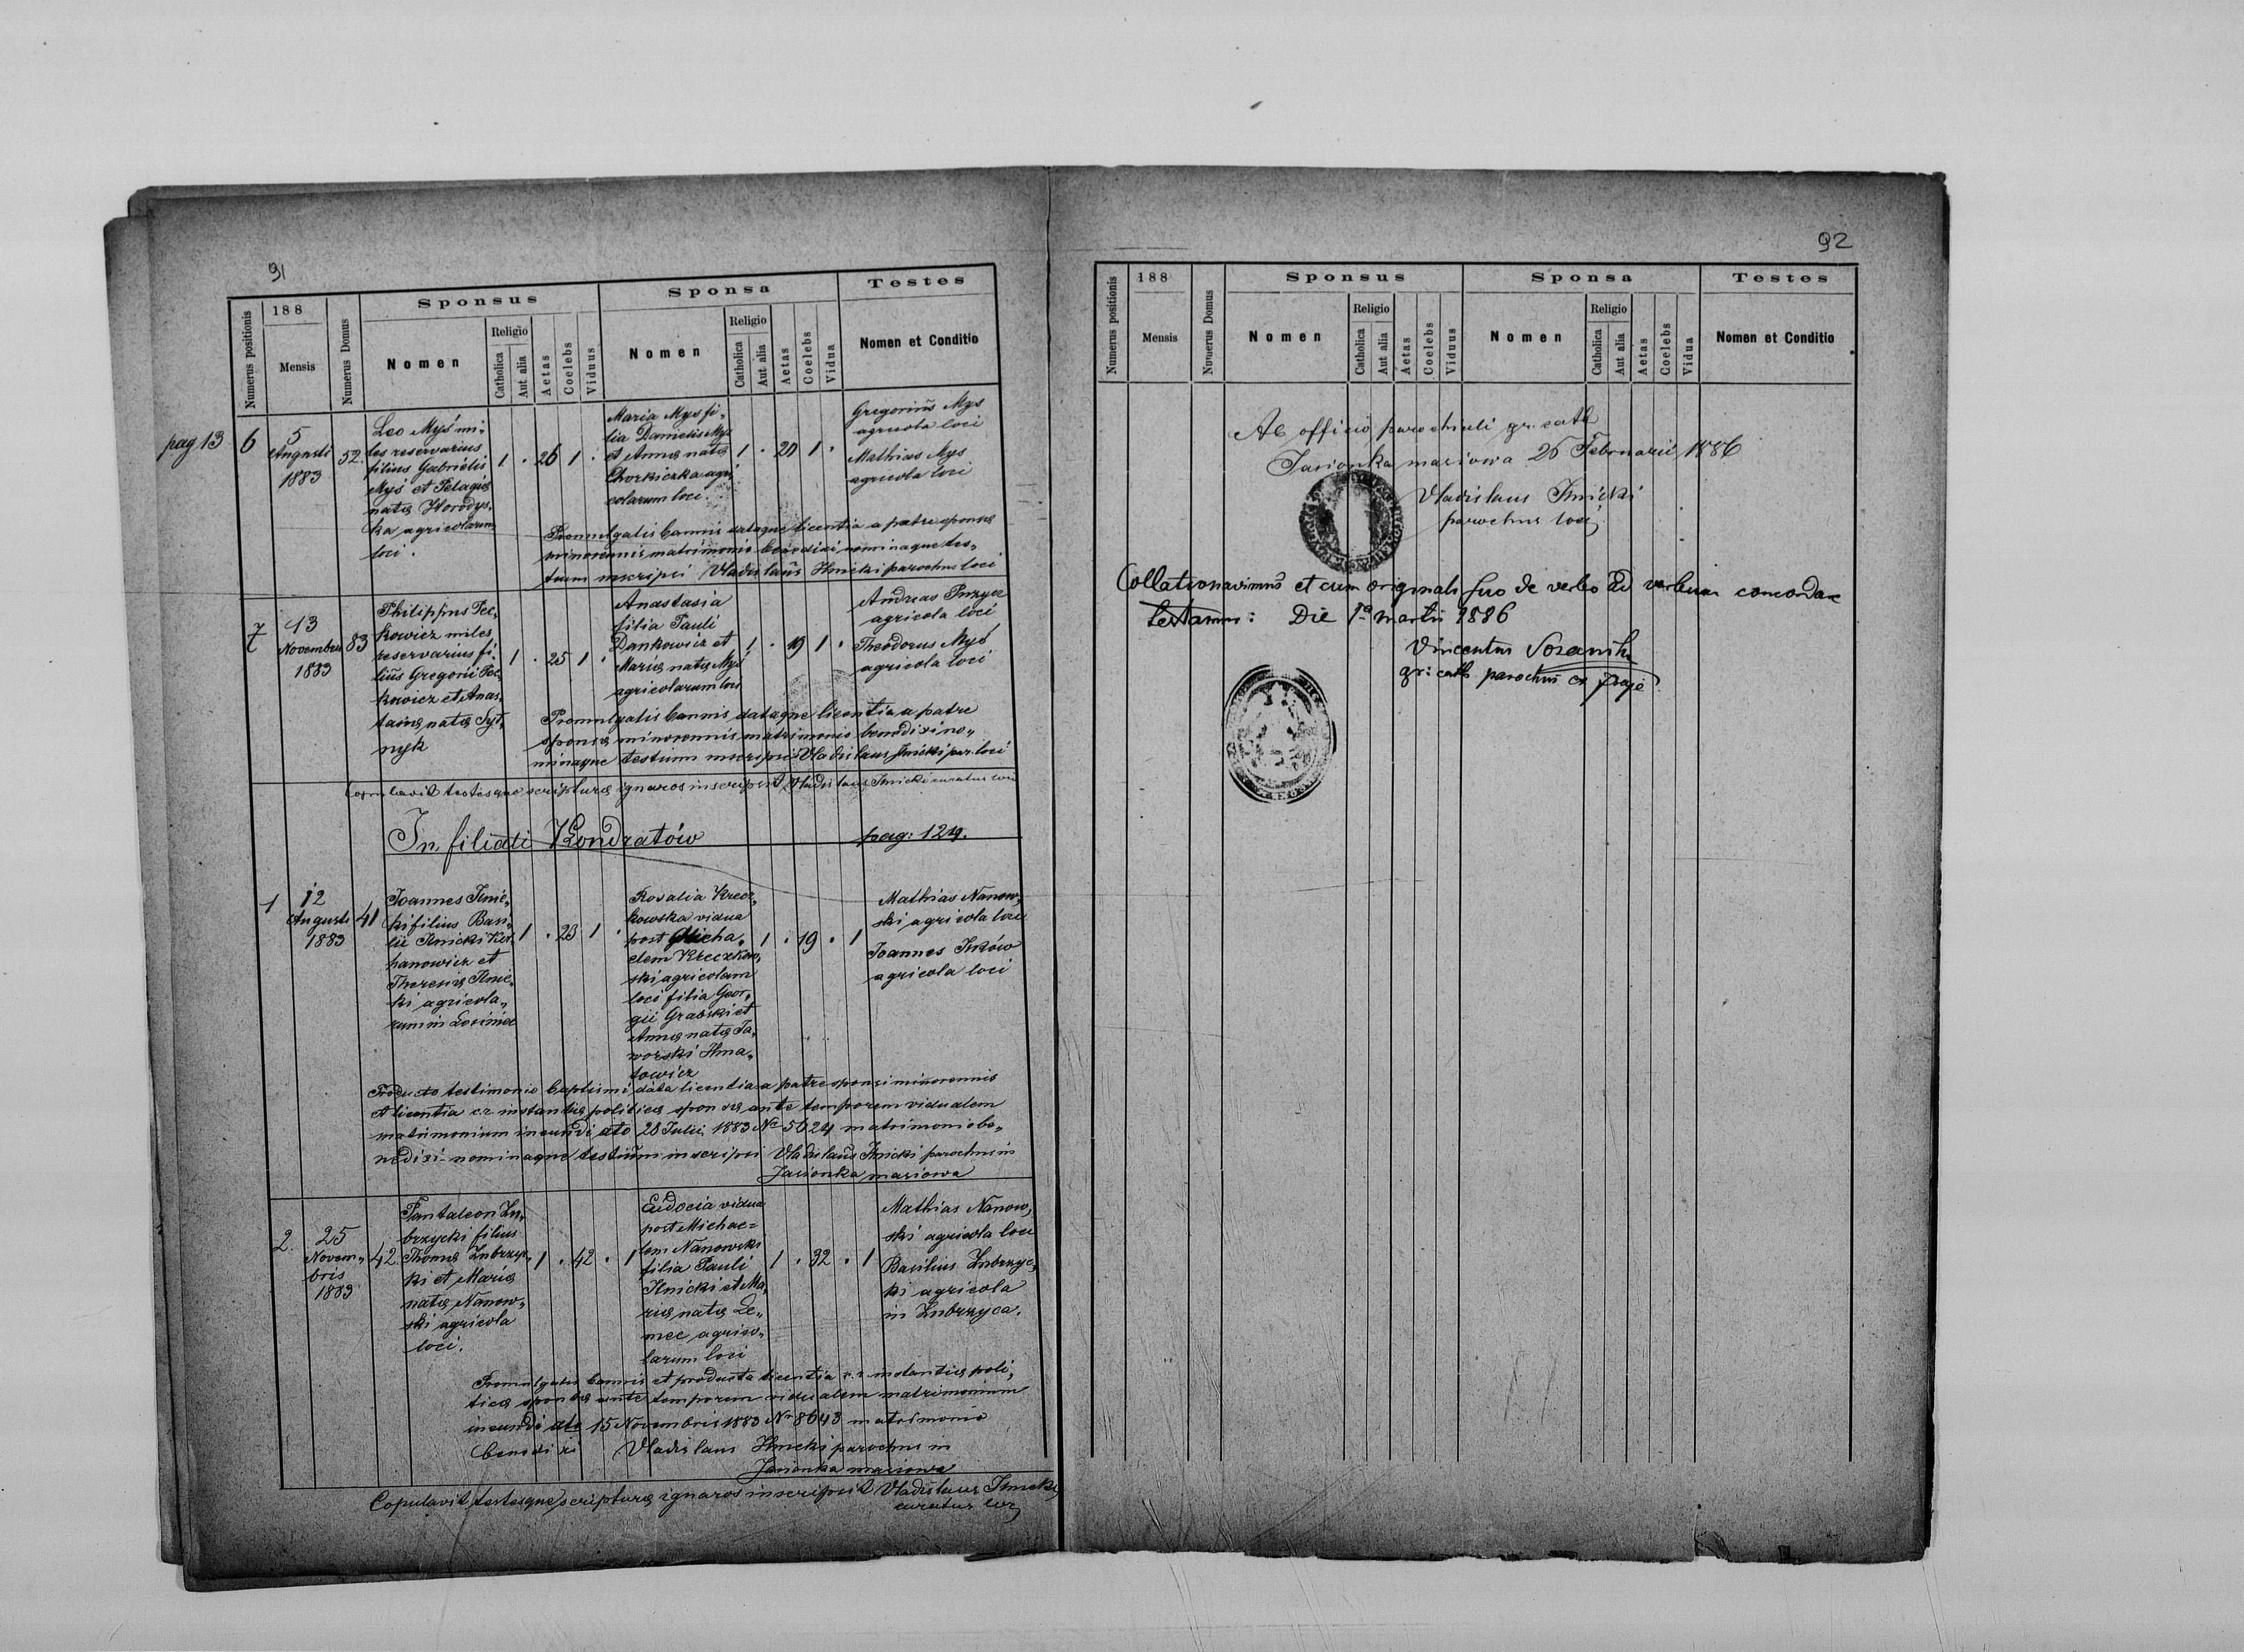 91
188
Sponsus
Sponsa
Testes
Numerus positionis
Mensis
Numerus Domus
Nomen
Religio
Catholica
Aut alia
Aetas
Coelebs
Viduus
Nomen
Religio
Catholica
Aut alia
Aetas
Coelebs
Vidua
Nomen et Conditio
pag 13
6
5
Augusti
1883
52.
Leo Myś mi„
les reservarius
filius Gabrielis
Myś et Pelagiæ
natæ Horodys„
ka agricolarum
loci.
1 . 26 1 .
Maria Mys fi„
lia Danielis Mys
et Annæ natæ
agri„
colarum loci.
1 . 20 1 .
Gregorius Mys
agricola loci
Mathias Mys
agricola loci
Promulgatis bannis dataque licentia a patre sponsæ
minorennis matrimonio benedixi nominaque tes„
tium inscripsi Vladislaus Ilnicki parochus loci
7
13
Novembris
1883
83
Philippus Pec„
kowicz miles
reservarius fi„
lius Gregorii Pec„
kowicz et Anas„
tasiæ natæ Syt„
nyk
1 . 25 1 .
Anastasia
filia Pauli
Dankowicz et
Mariæ natæ Myś
agricolarum loci
1 . 19 1 .
Andreas
agricola loci
Theodorus Myś
agricola loci
Promulgatis bannis dataque licentia a patre
sponsæ minorennis matrimonio benedixi no„
minaque testium inscripsi Vladislaus Ilnicki par. loci
Copulavit testesque scripturæ ignaros inscripsit Vladislaus Ilnicki curatus loci
In filiali Kondratów
pag: 124.
1
12
Augusti
1883
41
Joannes Ilnic„
ki filius Basi„
lii Ilnicki
et
Theresiæ Ilnic„
ki agricola„
rum in Łosiniec
1 . 23 1 .
Rosalia Krecz„
kowska vidua
post Micha„
elem Kreczkow„
ski agricolam
loci filia Geor„
gii Grabski et
Annæ natæ Ja„
worski Hma„
towicz
1 . 19 . 1
Mathias Nanow„
ski agricola loci
Joannes Ilków
agricola loci
Producto testimonio baptismi data licentia a patre sponsi minorennis
et licentia c.r. instantiæ politicæ sponsæ ante temporem vidualem
matrimonium ineundi dto 28 Julii 1883 No 5624 matrimonio be„
nedixi nominaque testium inscripsi Vladislaus Ilnicki parochus in
Jasionka masiowa
2.
25
Novem„
bris
1883
42
Pantaleon Zu„
brzycki filius
Thomæ Zubrzyc„
ki et Mariæ
natæ Nanow„
ski agricola
loci.
1 . 42 . 1
Eudocia vidua
post Michae=
lem Nanowski
filia Pauli
Ilnicki et Ma„
riæ natæ Le„
mec agrico„
larum loci
1 . 32 . 1
Mathias Nanow„
ski agricola loci
Basilius Zubrzyc„
ki agricola
in Zubrzyca.
Promulgatis bannis et producta licentia c.r. instantiæ poli„
ticæ sponsæ ante temporem vidualem matrimonium
ineundi dto 15 Novembris 1883 No 8643 matrimonio
benedixi Vladislaus Ilnicki parochus in
Jasionka masiowa
Copulavit testesque scripturæ ignaros inscripsit Vladislaus Ilnicki
curatus loci
92
188
Sponsus
Sponsa
Testes
Numerus positionis
Mensis
Numerus Domus
Nomen
Religio
Catholica
Aut alia
Aetas
Coelebs
Viduus
Nomen
Religio
Catholica
Aut alia
Aetas
Coelebs
Vidua
Nomen et Conditio
Ab officio parochiali gr. cath
Jasionka masiowa 26 Februarii 1886
Vladislaus Ilnicki
parochus loci
Collationavimus et cum originali suo de verbo ad verbum concordare
testamur: Die 1a Martii 1886
Vincentius
gr: cath parochus